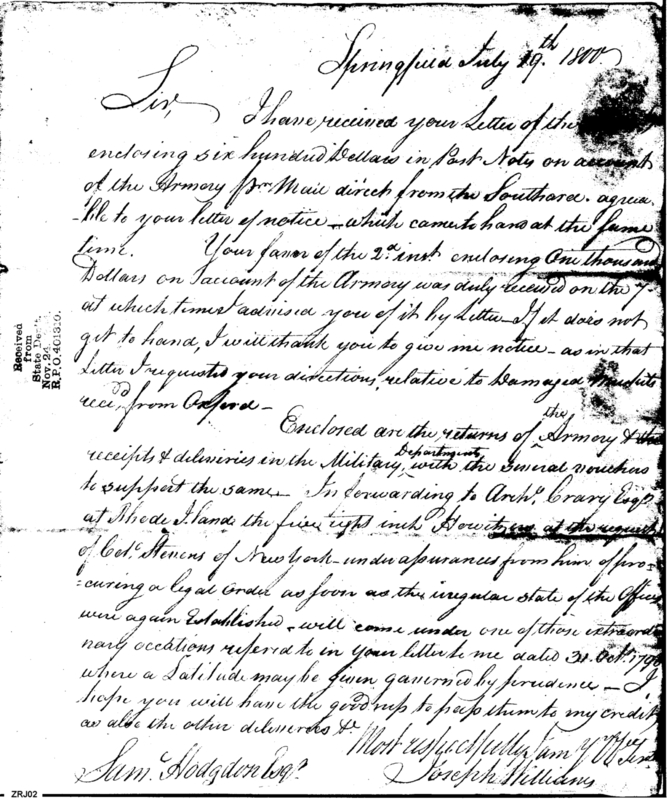 Springfield July 19th. 1800
Sir,
I have received your Letter of the
enclosing six hundred Dollars in Post Notes on account
of the Armory pr. Mail direct from the Southard. agrea
-ble to your letter of notice – which came to hand at the same
time. Your favor of the 2d. inst enclosing One thousand
Dollars on account of the Armory was duly received on the 7
at which time I advised you of it by Letter – If it does not
get to hand, I will thank you to give me notice – as in that
Letter I requested your directions, relative to Damaged Muskets
recd. from Oxford –
Enclosed are the returns of the Armory & the
receipts & deliveries in the Military Department, with the several vouchers
to support the same – In forwarding to Archd. Crary Esqr.
at Rhode Island the five eight inch Howitzers at the request
of Cols. Stevens of New York – under assurances from him of pro-
-curing a legal order as soon as the irregular state of the Offices
were again Established – will come under one of those extraordi
nary occations referred to in your letter to me dated 31. Octr. 179
where a Latitude may be given governed by prudence – I
hope you will have the goodness to pass them to my credit
as also the other deliveries &c.
Most respectfully I am Sir
Joseph Williams
Saml. Hodgdon Esqr.
Received
from
State Dept.
Nov. 24
R.P.O. 401310.
ZRJ02